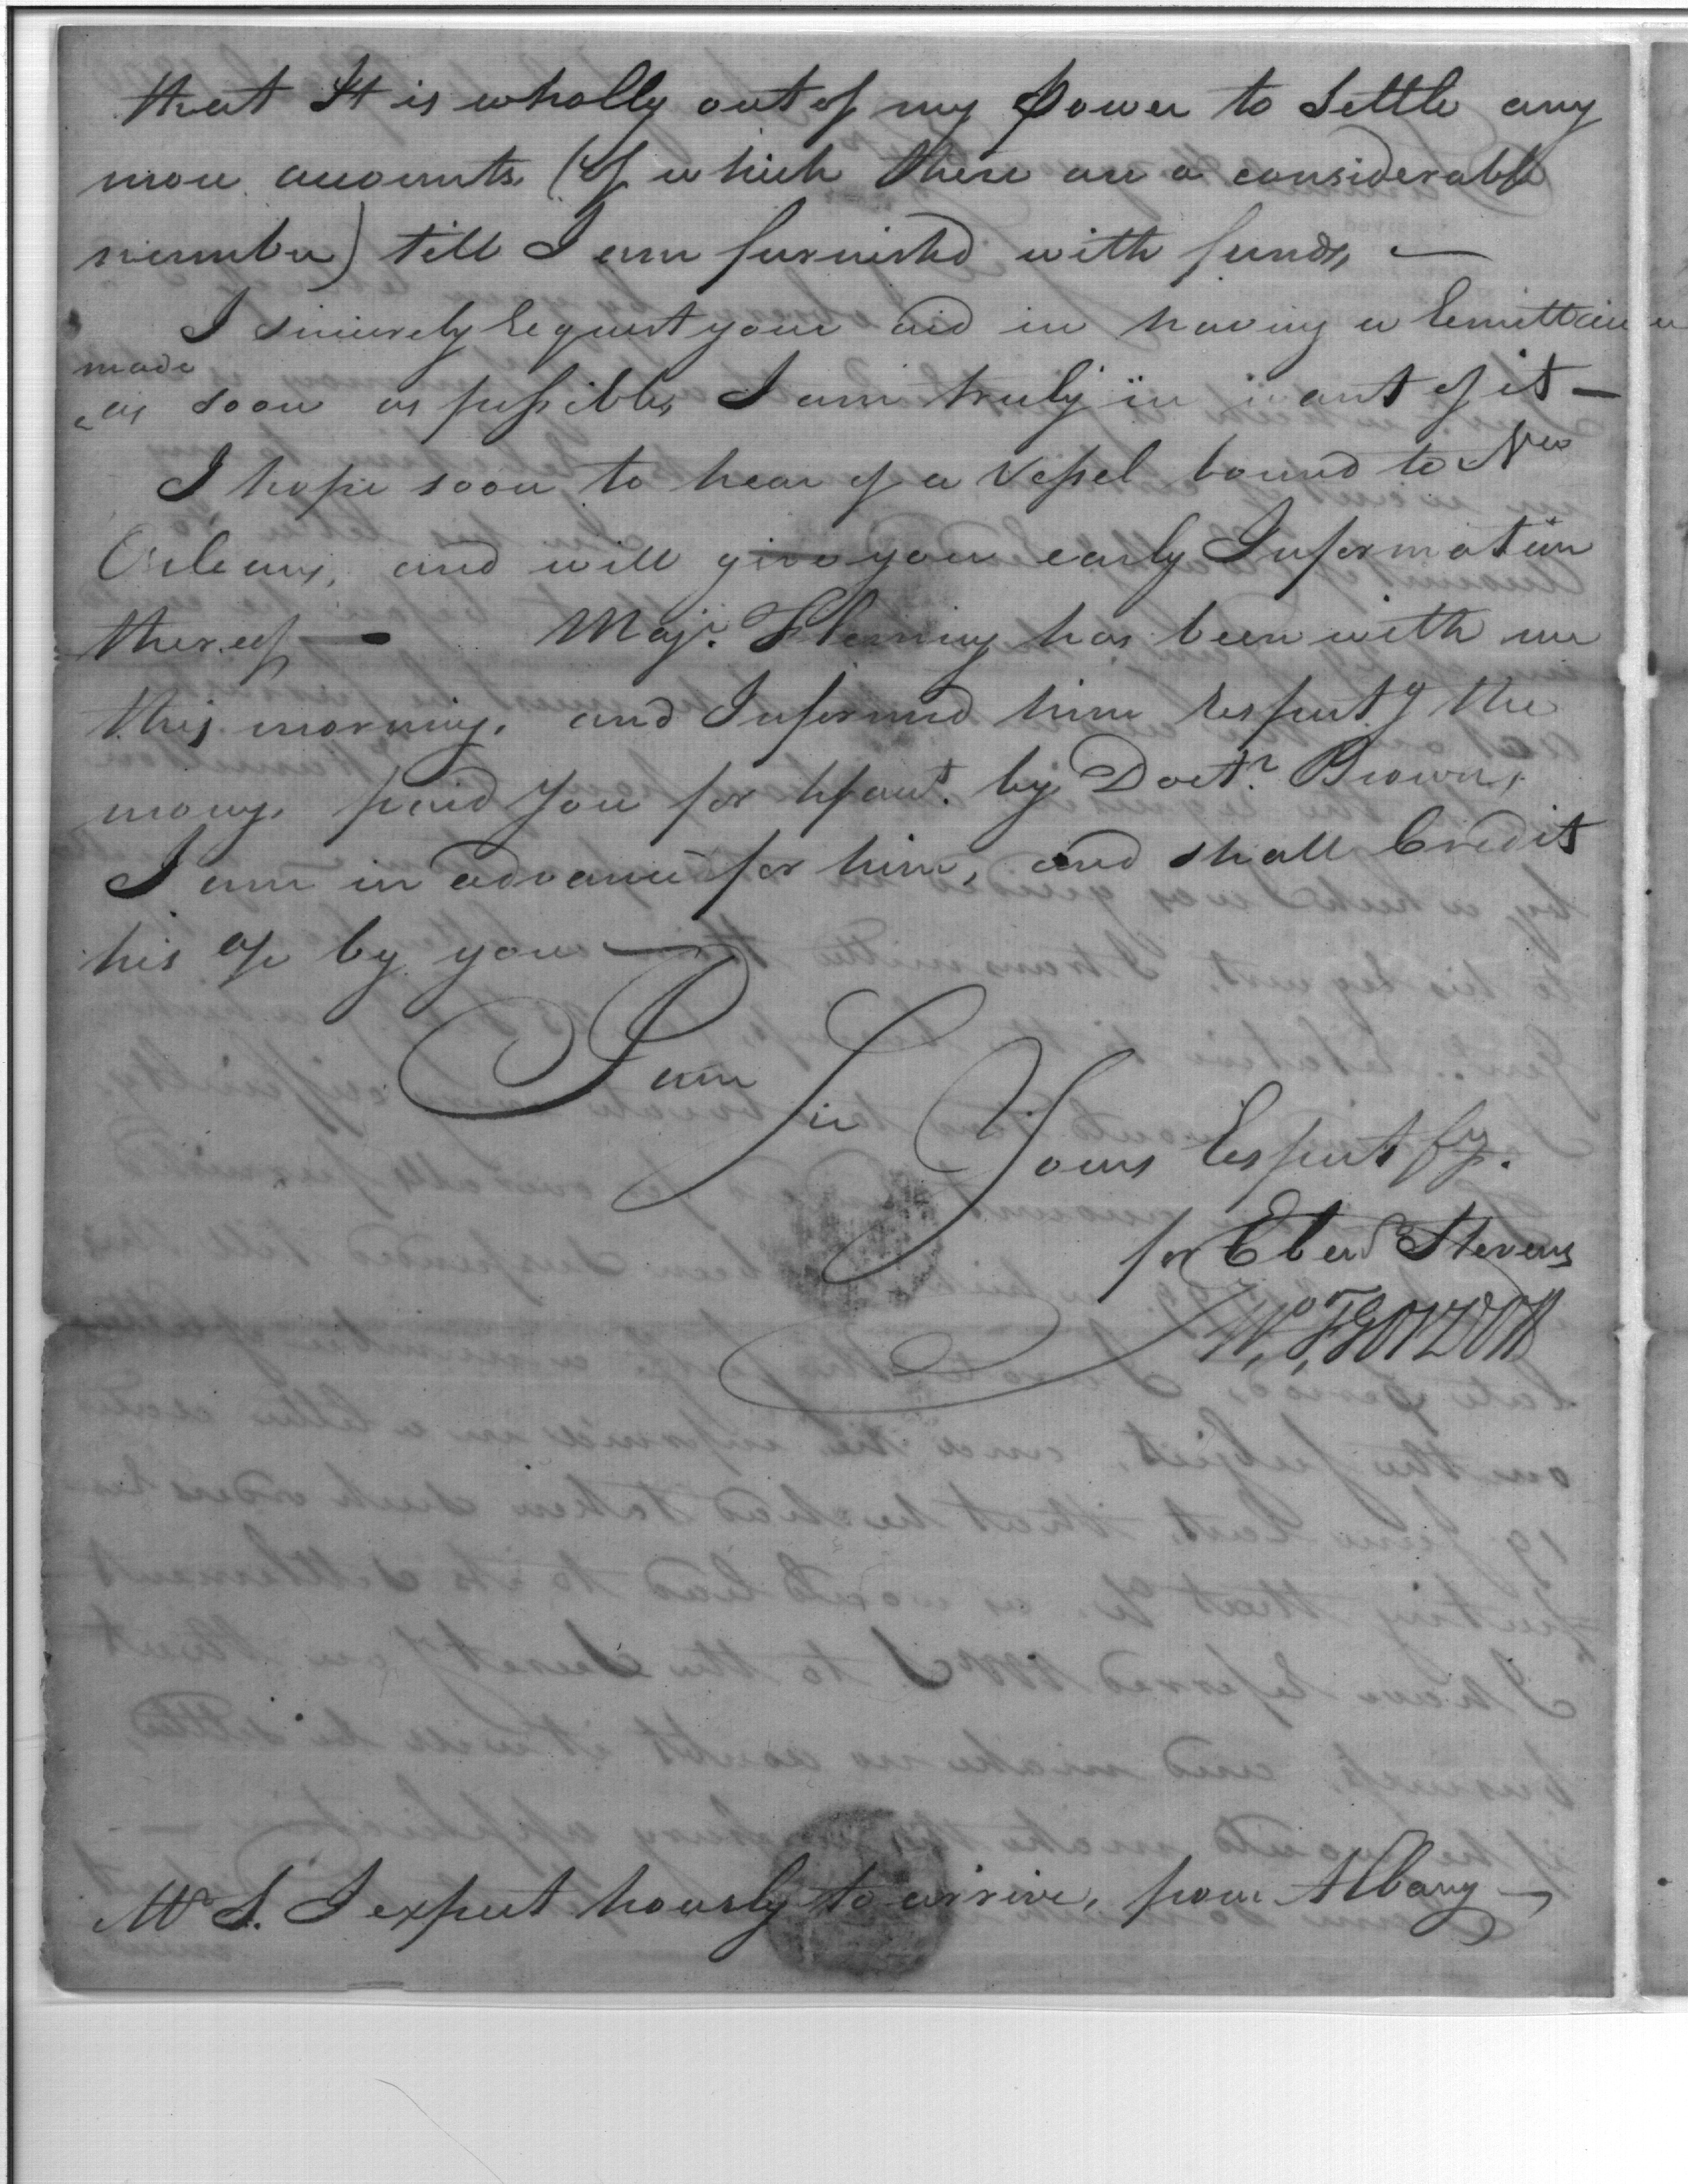 that It is wholly out of my Power to Settle any
more accounts (of which there are a considerable
number) till I am furnishd with funds, —
I sincerely Request your aid in having a Remittance
made
as soon as possible, I am truly in want of it —
I hope soon to hear of a Vessel bound to New
Orleans, and will give you early Information
thereof — Majr. Fleming has been with me
this morning, and Informed him respectg the
mony. paid you for his by Doctr. Brown,
I am in advance for him, and shall Credit
his a/c by you —
I am
Sir
Yours Respectfy.
for Ebenr Stevens
Mr S. I expect hourly to arrive, from Albany —